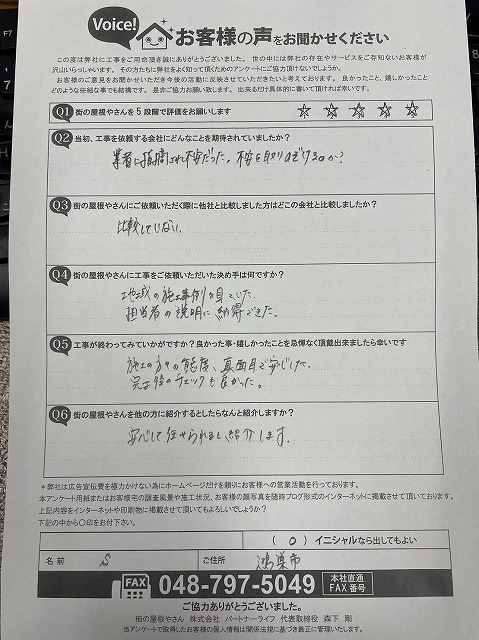 Voice!
お客様の声をお聞かせください
この度は弊社に工事をご用命頂き誠にありがとうございました。 世の中には弊社の存在やサービスをご存知ないお客様が
沢山いらっしゃいます。その方たちに弊社をよく知って頂くためのアンケートにご協力頂けないでしょうか。
お客様のご意見をお聞かせいただき今後の活動に反映させていただきたいと考えております。 良かったこと、嬉しかったこと
どのような些細な事でも結構です。 是非ご協力お願い致します。 出来るだけ具体的に書いて頂ければ幸いです。
Q1 街の屋根やさんを5段階で評価をお願いします
☆ ☆ ☆ ☆ ☆
Q2 当初、工事を依頼する会社にどんなことを期待されていましたか?
業者に指摘され不安だった。不安を取りのぞけるのか?
Q3 街の屋根やさんにご依頼いただく際に他社と比較しました方はどこの会社と比較しましたか?
比較していない。
Q4 街の屋根やさんに工事をご依頼いただいた決め手は何ですか?
地域の施工事例を見ていた。
担当者の説明に納得できた。
Q5 工事が終わってみていかがですか?良かった事・嬉しかったことを忌憚なく頂戴出来ましたら幸いです
施工の方々の態度、真面目で安心した。
完了後のチェックも良かった。
Q6 街の屋根やさんを他の方に紹介するとしたらなんと紹介しますか?
安心して任せられると紹介します。
*弊社は広告宣伝費を極力かけない為にホームページだけを頼りにお客様への営業活動を行っております。
本アンケート用紙またはお客様宅の調査風景や施工状況、お客様の顔写真を随時ブログ形式のインターネットに掲載させて頂いております。
上記内容をインターネットや印刷物に掲載させて頂いてもよろしいでしょうか?
下記の中から〇印をお付下さい。
( 〇 ) イニシャルなら出してもよい
名前 S ご住所 鴻巣市
FAX 048-797-5049 本社直通 FAX番号
ご協力ありがとうございました。
街の屋根やさん 株式会社 パートナーライフ 代表取締役 森下 剛
当アンケートで取得したお客様の個人情報は関係法規に基づき厳正に管理いたします。